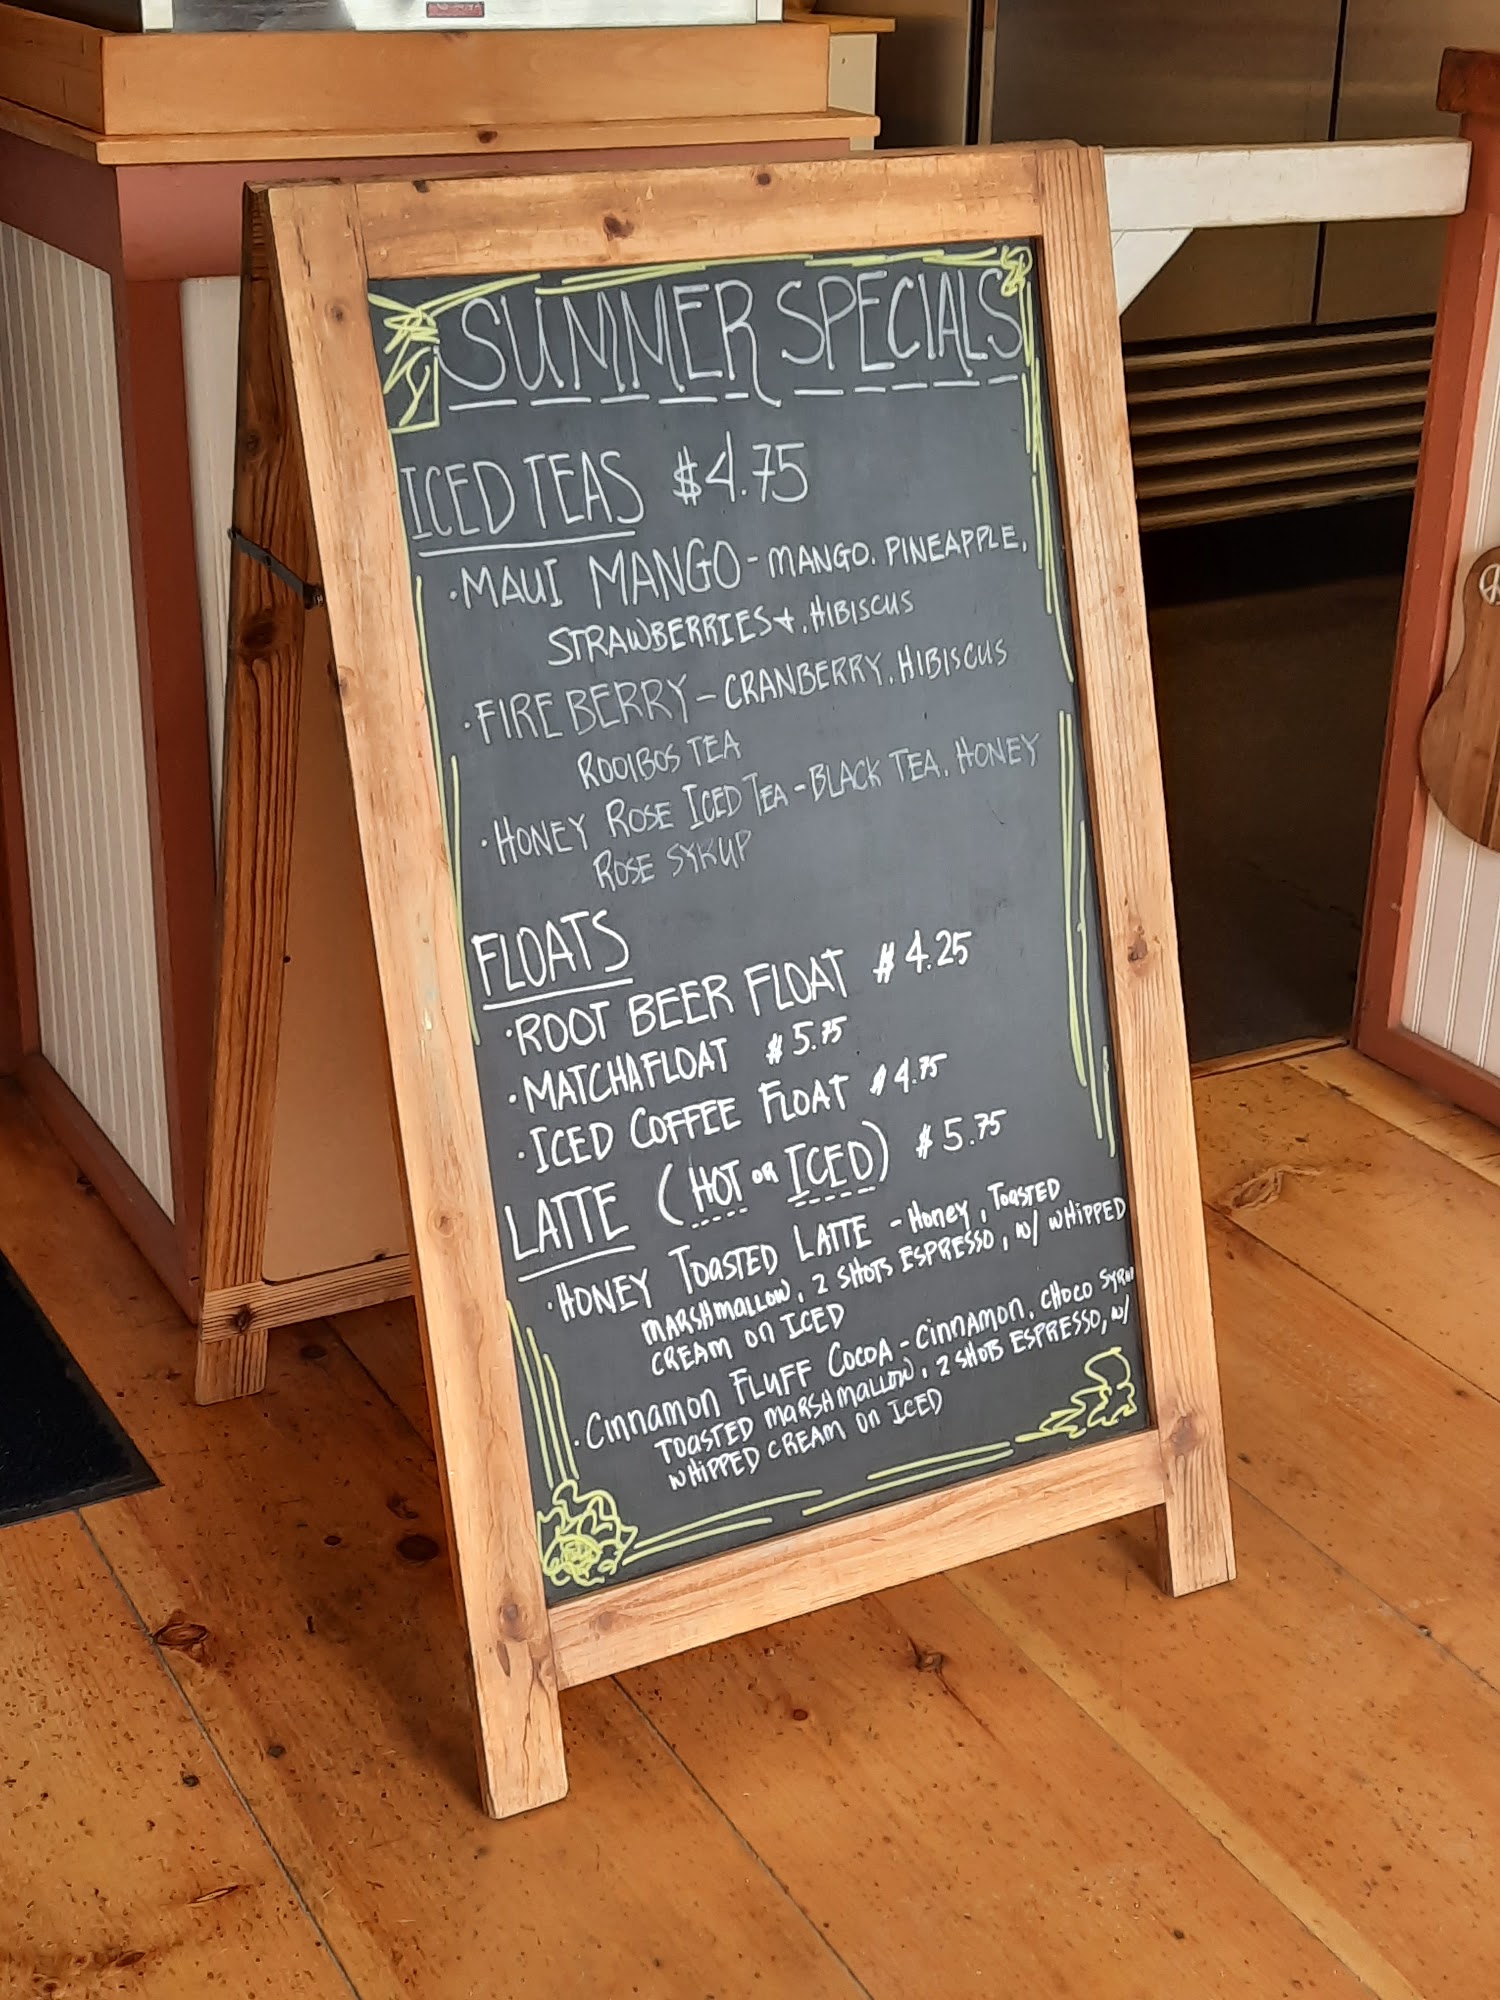 SUMMER SPECIALS
ICED TEAS $4.75
·MAUI MANGO - MANGO, PINEAPPLE,
STRAWBERRIES +, HIBISCUS
·FIRE BERRY - CRANBERRY, HIBISCUS
ROOIBOS TEA
·HONEY ROSE ICED TEA - BLACK TEA, HONEY
ROSE SYRUP
FLOATS
·ROOT BEER FLOAT $4.25
·MATCHA FLOAT $5.75
·ICED COFFEE FLOAT $4.75
LATTE (HOT OR ICED) $5.75
·HONEY TOASTED LATTE - HONEY, TOASTED
MARSHMALLOW, 2 SHOTS ESPRESSO, W/ WHIPPED
CREAM ON ICED
·CINNAMON FLUFF COCOA - CINNAMON, CHOCO SYRUP
TOASTED MARSHMALLOW, 2 SHOTS ESPRESSO, W/
WHIPPED CREAM ON ICED